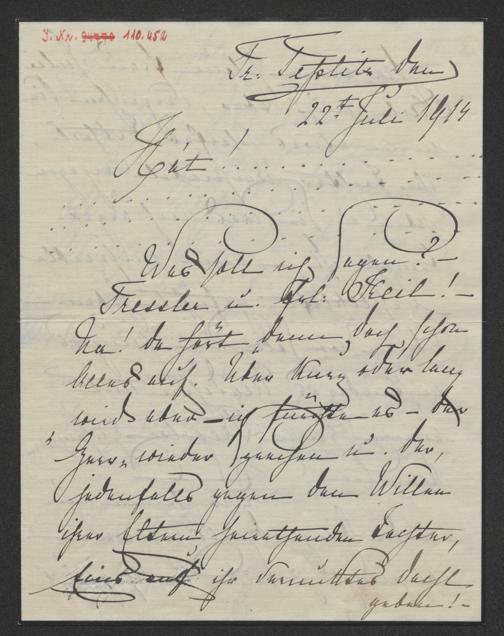 J. Nr. 110.452
Tr. Teplitz den
22t Juli 1914
Hát!
Was soll ich sagen? –
Tressler u. Frl. Keil! –
Na! da hört denn doch schon
Alles auf. Über Kurz oder lang
wird aber – ich fürchte es – der
"Herr" wieder u. der,
jedenfalls gegen den Willen
ihrer Eltern heirathenden Tochter,
ihr vermutetes
geben! –